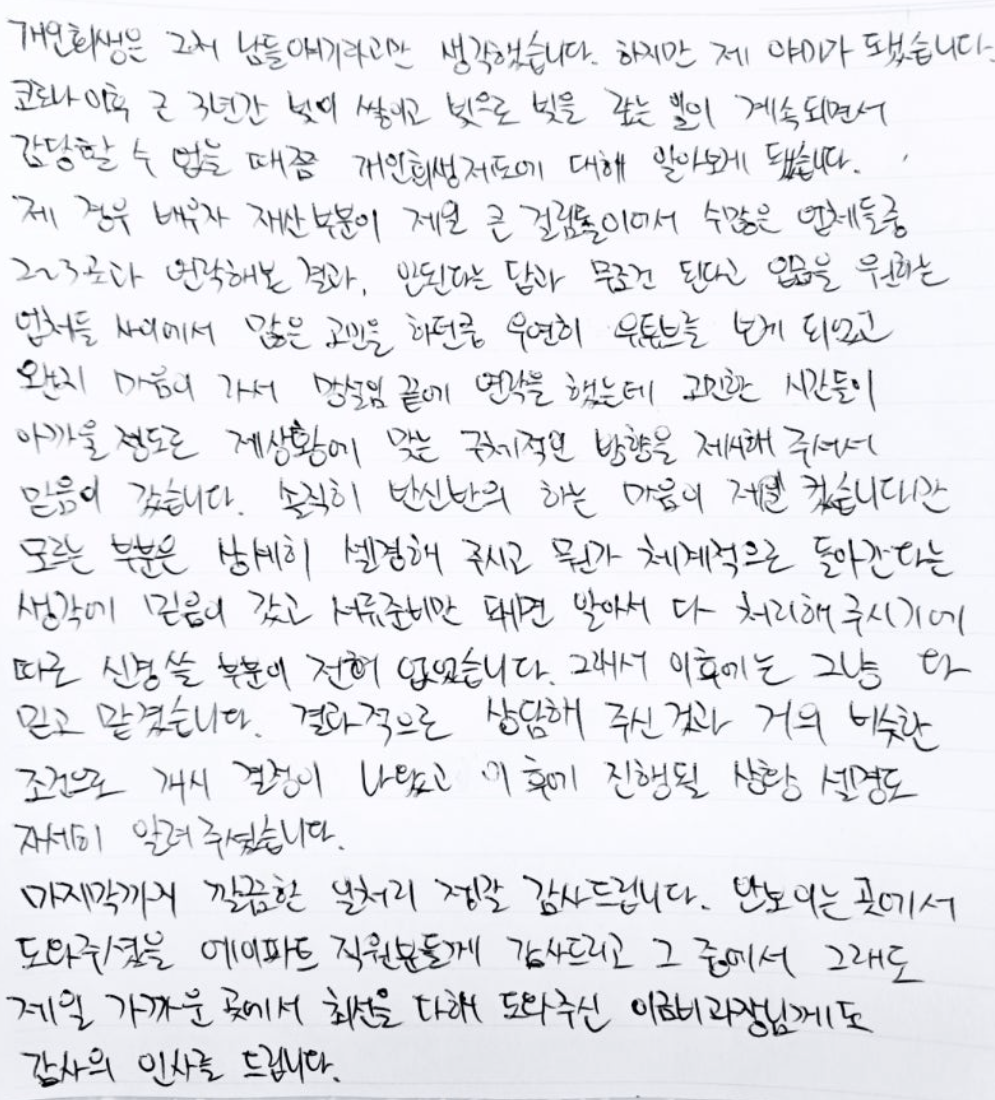 개인회생은 그저 남들얘기라고만 생각했습니다. 하지만 제 야기가 됐습니다.
코로나 이후 근 3년간 빚이 쌓이고 빚으로 빚을 갚는 일이 계속되면서
감당할 수 없을 때쯤 개인회생제도에 대해 알아보게 됐습니다.
제 경우 배우자 재산부분이 제일 큰 걸림돌이여서 수많은 업체들중
2~3곳과 연락해본 결과, 안된다는 답과 무조건 된다고 입금을 우선하는
업체들 사이에서 많은 고민을 하던중 우연히 유튜브를 보게 되었고
왠지 마음이 가서 망설임 끝에 연락을 했는데 고민한 시간들이
아까울 정도로 제상황에 맞는 구체적인 방향을 제시해 주셔서
믿음이 갔습니다. 솔직히 반신반의 하는 마음이 제일 컸습니다만
모르는 부분은 상세히 설명해 주시고 뭔가 체계적으로 돌아간다는
생각에 믿음이 갔고 서류준비만 되면 알아서 다 처리해 주시기에
따로 신경쓸 부분이 전혀 없었습니다. 그래서 이후에는 그냥 다
믿고 맡겼습니다. 결과적으로 상담해 주신 것과 거의 비슷한
조건으로 개시 결정이 나왔고 이 후에 진행될 상황 설명도
자세히 알려 주셨습니다.
마지막까지 깔끔한 일처리 정말 감사드립니다. 안보이는 곳에서
도와주셨을 에이파트 직원분들께 감사드리고 그 중에서 그래도
제일 가까운 곳에서 최선을 다해 도와주신 이금비과장님께도
감사의 인사를 드립니다.